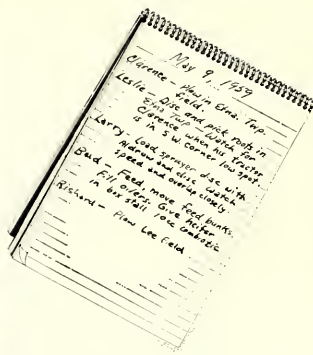 May 9, 1959
Clarence - Plow in Elma. Twp.
field.
Leslie - Disc and pick roots in
Elma Twp - Watch for
Clarence when his tractor
is in S.W. corner low spot.
Larry - Load sprayer disc with
Aldrow and disc. Watch
speed and overlap closely.
Bud - Feed, move feed bunks.
Fill oilers. Give heifer
in box stall 10cc Combiotic
Richard - Plow Lee Field